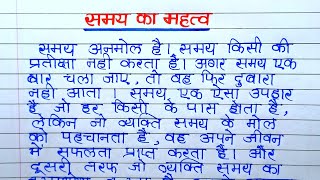 समय का महत्व
समय अनमोल है। समय किसी की
प्रतीक्षा नही करता है। अगर समय एक
बार चला जाए, तो वह फिर दुबारा
नही आता । समय एक ऐसा उपहार
है जो हर किसी के पास होता है,
लेकिन जो व्यक्ति समय के मोल
को पहचानता है, वह अपने जीवन
में सफलता प्राप्त करता है। और
दूसरी तरफ जो व्यक्ति समय का